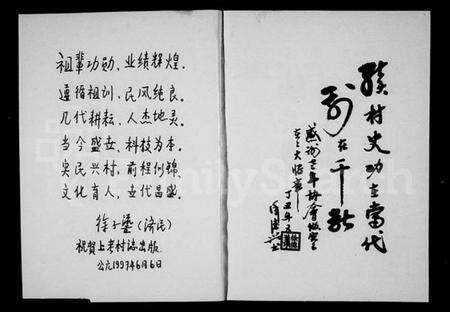 祖辈功勋、业绩辉煌.
遵循祖训、民风纯良.
几代耕耘、人杰地灵.
当今盛世、科技为本.
实民兴村、前程似锦.
文化育人、世代昌盛.
徐子鎏(济民)
祝贺上老村志出版
公元1997年6月6日
续村史功在當代
利在千秋
丁丑年
FamilySearch